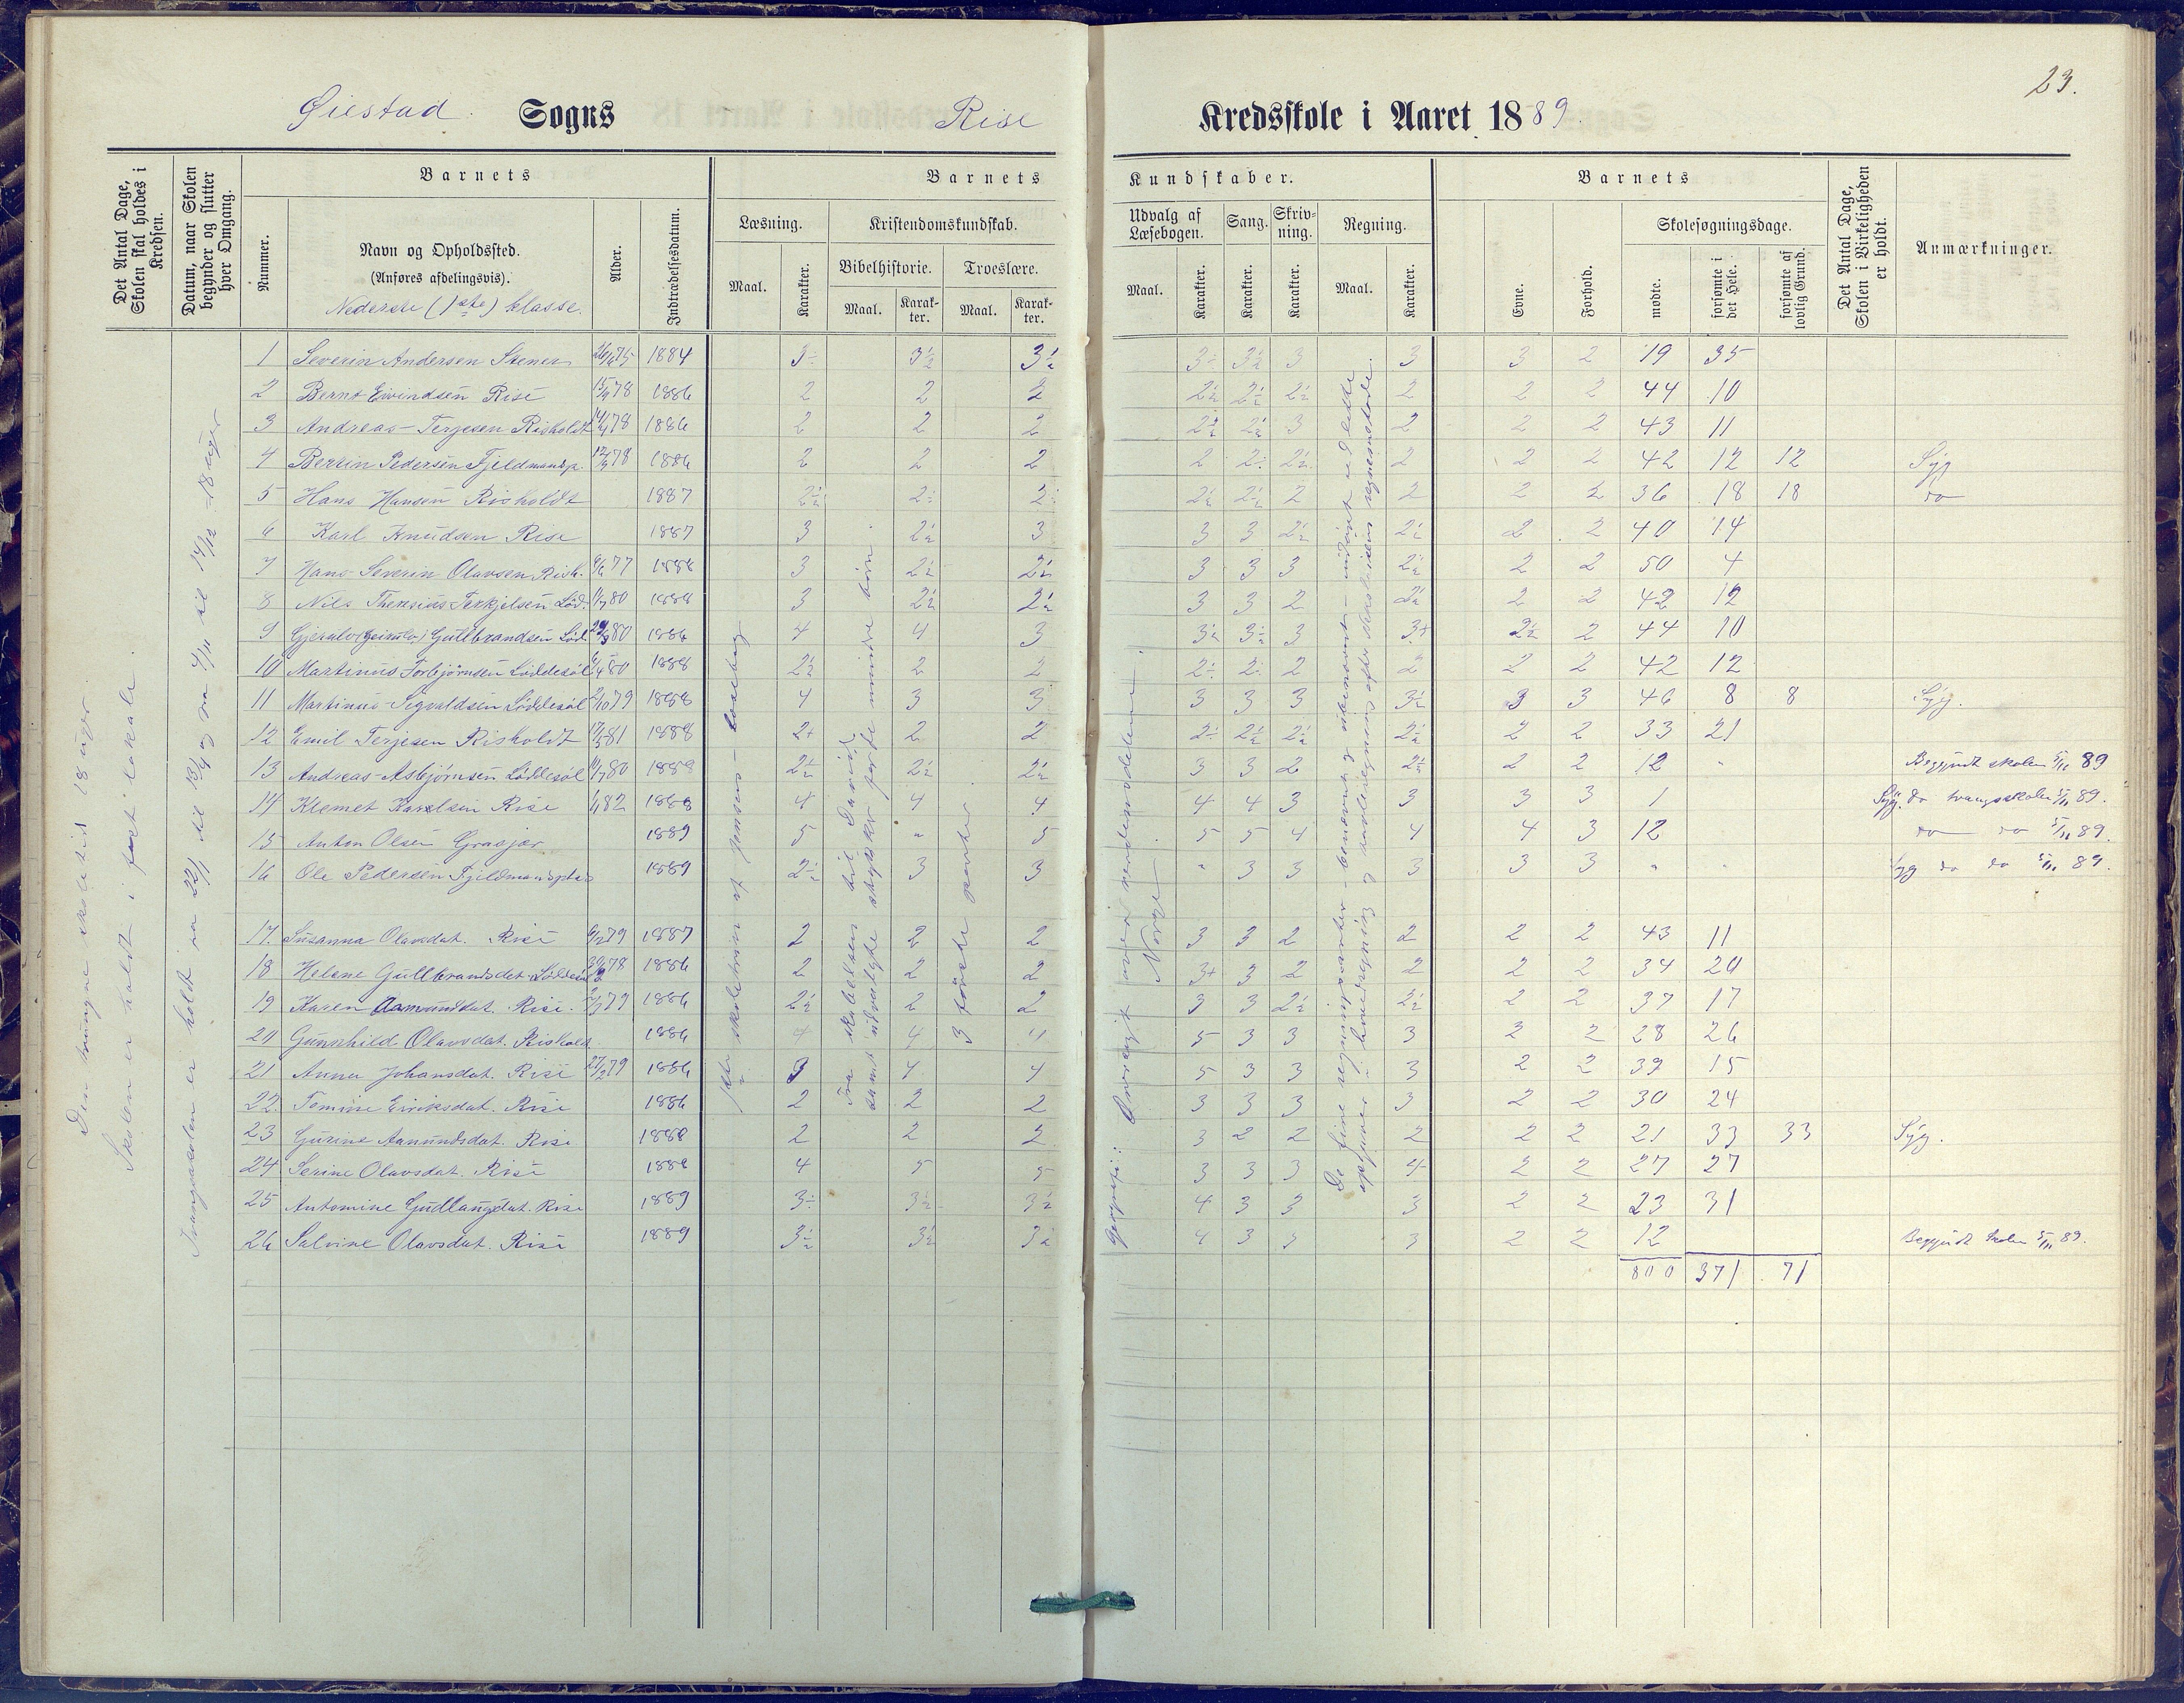 23.
Øiestad. Sogns Rise Kredsskole i Aaret 1889
Det Antal Dage, Skolen skal holdes i Kredsen.
Datum, naar Skolen begynder og slutter hver Omgang.
Barnets
Nummer.
Navn og Opholdssted.
(Anføres afdelingsvis).
Nederste (1ste) klasse.
Alder.
Indtrædelsesdatum.
Barnets Kundskaber.
Læsning.
Maal.
Karakter.
Kristendomskundskab.
Bibelhistorie.
Maal.
Karakter.
Troeslære.
Maal.
Karakter.
Udvalg af Læsebogen.
Maal.
Karakter.
Sang.
Karakter.
Skrivning.
Karakter.
Regning.
Maal.
Karakter.
Barnets
Evne.
Forhold.
Skolesøgningsdage.
mødte.
forsømte i det Hele.
forsømte af lovlig Grund.
Det Antal Dage, Skolen i Virkeligheden er holdt.
Anmærkninger.
Den tvungne skoletid 18 uger.
Skolen er holdt i fast lokale.
Tvangsskolen er holdt fra 22/1 til 13/4 og fra 4/11 til 14/12 - 18 uger
1 Severin Andersen Stenen 26/6 75 1884 3÷ 3½ 3½ 3÷ 3½ 3 3 3 2 19 35
2 Bernt Eivindsen Rise 15/4 78 1886 2 2 2 2½ 2½ 2½ 2 2 2 44 10
3 Andreas Terjesen Risholdt 14/4 78 1886 2 2 2 2½ 2½ 3 2 2 2 43 11
4 Bertin Pedersen Fjeldmandsp. 12/9 78 1886 2 2 2 2 2÷ 2½ 2 2 2 42 12 12 Syg
5 Hans Hansen Risholdt 1887 2½ 2÷ 2÷ 2½ 2½ 2 2 2 2 36 18 18 do
6 Karl Knudsen Rise 1887 3 2½ 3 3 3 2½ 2½ 2 2 40 14
7 Hans Severin Olavsen Rish. 6/6 77 1888 3 2½ 2½ 3 3 3 2½ 2 2 50 4
8 Nils Theresius Terkjelsen Lød. 11/7 80 1888 3 2½ 2½ 3 3 2 2½ 2 2 42 12
9 Gjerulv (Geirulv) Gullbrandsen Lød. 29/3 80 1886 4 4 3 3½ 3½ 3 3+ 2½ 2 44 10
10 Martinus Torbjørnsen Løddesøl 6/4 80 1888 2½ 2 2 2÷ 2÷ 2 2 2 2 42 12
11 Martinus Sigvaldsen Løddesøl 2/10 79 1888 4 3 3 3 3 3 3½ 3 3 46 8 8 Syg.
12 Emil Terjesen Risholdt 17/5 81 1888 2+ 2 2 2÷ 2½ 2½ 2½ 2 2 33 21
13 Andreas Asbjørnsen Løddesøl 10/7 80 1889 2½ 2½ 2½ 3 3 2 2½ 2 2 12 " Begyndt skolen 5/11 89
14 Klemet Karelsen Rise 1/4 82 1889 4 4 4 4 4 3 3 3 3 1 Syg. do tvangsskolen 5/11 89.
15 Anton Olsen Grasjær 1889 5 " 5 5 5 4 4 4 3 12 do do 5/11 89.
16 Ole Pedersen Fjeldmandsplas 1889 2½ 3 3 " 3 3 3 3 3 " " Syg do do 5/11 89.
17. Susanna Olavsdat. Rise 6/2 79 1887 2 2 2 3 3 2 2 2 2 43 11
18 Helene Gullbrandsdat. Løddesøl 30/6 78 1886 2 2 2 3+ 3 2 2 2 2 34 20
19 Karen Aamunddat. Rise. 5/3 79 1886 2½ 2 2 3 3 2½ 2½ 2 2 37 17
20 Gunnhild Olavsdat. Risholdt 1886 4 4 " 5 3 3 3 3 2 28 26
21 Anna Johansdat. Rise 27/2 79 1886 3 4 4 5 3 3 3 2 2 39 15
22. Tomine Eiriksdat. Rise 1886 2 2 2 3 3 3 3 2 2 30 24
23 Gurine Aanundsdat. Rise 1888 2 2 2 3 2 2 2 2 2 21 33 33 Syg.
24 Serine Olavsdat. Rise 1888 4 5 5 3 3 3 4 2 2 27 27
25 Antomine Gudlaugdat. Rise 1889 3÷ 3½ 3½ 4 3 3 3 2 2 23 31
26 Salvine Olavsdat. Rise 1889 3½ 3½ 3½ 4 3 3 3 2 2 12 Begyndt skolen 5/11 89.
800 371 71
1ste skoletrin af Jensens læsebog
Fra skabelsen til David
samt udvalgte stykker for de mindre børn.
3 første parter.
Geografi: Oversigt over verdensdelene
Norge
De fire regningsarter - benævnt og ubenævnt - indøvet ved lette
opgaver i hovedregning og tavleregning efter Nicolaisens regnemetode.